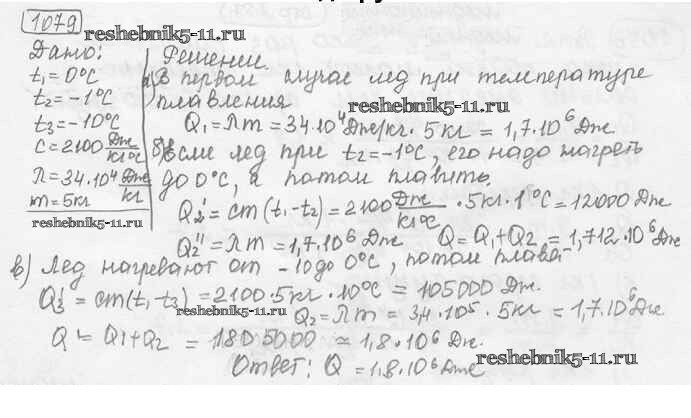 1079
reshebnik5-11.ru
Дано:
t₁=0°C
t₂=-1°C
t₃=-10°C
c=2100 Дж/кг°C
λ=34·10⁴ Дж/кг
m=5кг
reshebnik5-11.ru
Решение
а) В первом случае лед при температуре
плавления
reshebnik5-11.ru
Q₁=λm=34·10⁴ Дж/кг·5кг=1,7·10⁶ Дж.
б) Если лед при t₂=-1°C, его надо нагреть
до 0°C, а потом плавить.
Q₂'=cm(t₁-t₂)=2100 Дж/кг°C·5кг·1°C=12000 Дж
Q₂''=λm=1,7·10⁶ Дж Q=Q₁+Q₂=1,712·10⁶ Дж
в) Лед нагревают от -10 до 0°C, потом плавят
Q₃'=cm(t₁-t₃)=2100·5кг·10°C=105000 Дж.
reshebnik5-11.ru
Q₂=λm=3,4·10⁵·5кг=1,7·10⁶ Дж.
Q=Q₁+Q₂=1805000≃1,8·10⁶ Дж.
reshebnik5-11.ru
Ответ: Q=1,8·10⁶ Дж